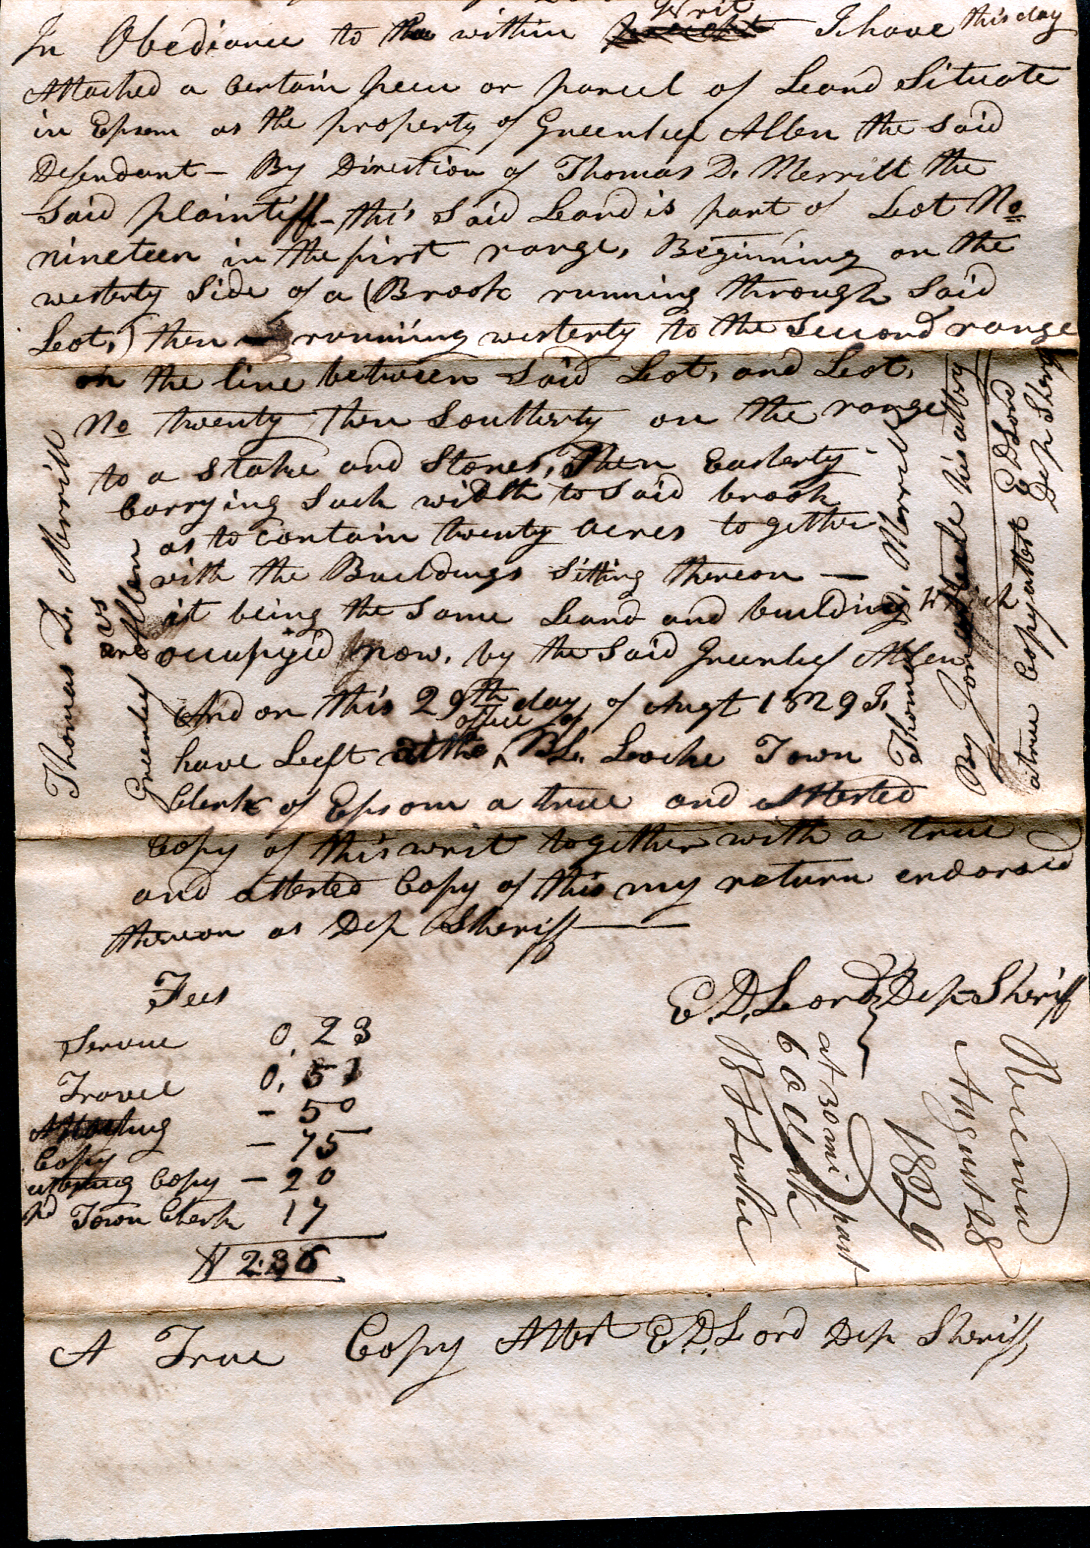 In Obediance to the within Writ I have this day
Attached a Certain peec or parcel of Leand Situate
in Epsom as the property of Greenlief Allen the Said
Defendant – By Direction of Thomas D. Merrill the
Said plaintiff – this Said Leand is part of Leot No
nineteen in the first range, Beginning on the
westerly Side of a (Brook running through Said
Leot,) then running westerly to the Second range
on the line between Said Leot, and Leot,
No twenty then Southerly on the range
to a stake and Stones, Then Easterly
Carrying Such width to Said brook
as to contain twenty acres together
with the Buildings Sitting thereon —
it being the Same Leand and building which
occupyed now, by the Said Greenlief Allen
And on this 29th day of Augt 1829 I
have Left at the office of B. L. Locke Town
Clerk of Epsom a true and attested
Copy of this writ together with a true
and attested Copy of this my return endorsed
thereon as Dep Sheriff —
E. D. Leord Dep Sheriff
Fees
Servece 0, 23
Travel 0, 51
Attaching - 50
Copy - 75
attesting Copy - 20
pd Town Clerk 17
$ 2.36
Thomas D. Merrill
vs
Greenlief Allen
Thomas D. Merrill
By his attory
a true Copy attest E D Lord
Dep Sheriff
Receved
August 28
1829
at 30 mi past
6 oClock
B L Locke
A True Copy Attest E. D. Leord Dep Sheriff